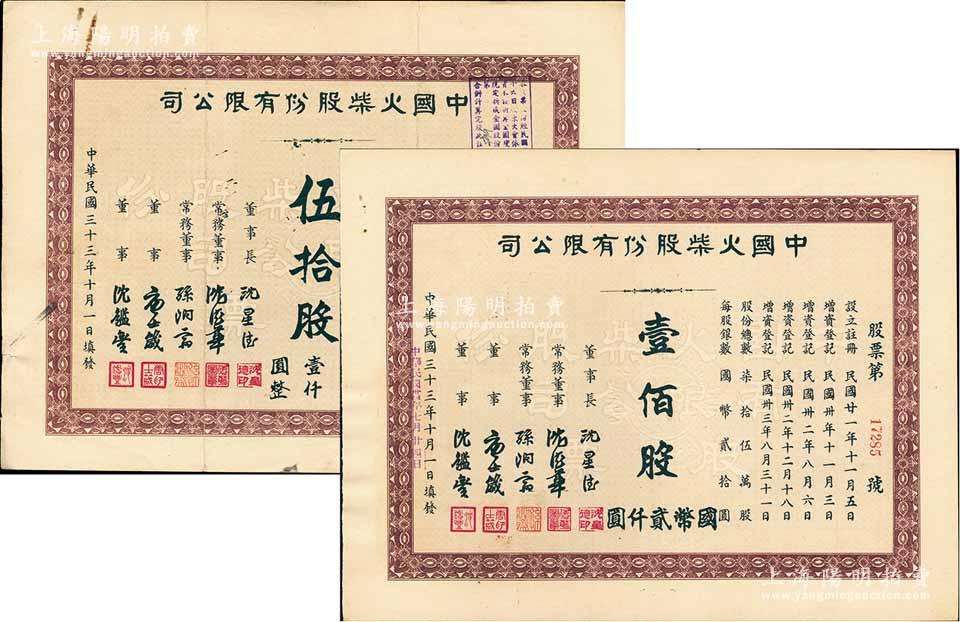 上海陽明拍賣
www.yangmingauction.com
中國火柴股份有限公司
伍拾股
壹仟
圓整
董事長 沈星德
常務董事
常務董事 孫潤富
董事
董事 沈鑑堂
中華民國三十三年十月一日填發
中國火柴股份有限公司
股票第 17285 號
設立註冊 民國廿一年十一月五日
增資登記 民國卅年十一月三日
增資登記 民國卅二年八月六日
增資登記 民國卅二年十二月十八日
增資登記 民國卅三年八月三十一日
股份總數 柒拾伍萬股
每股銀數 國幣貳拾圓
壹佰股
國幣貳仟圓
董事長 沈星德
常務董事
常務董事 孫潤富
董事
董事 沈鑑堂
中華民國三十三年十月一日填發
上海陽明拍賣
www.yangmingauction.com
上海陽明拍賣
www.yangmingauction.com